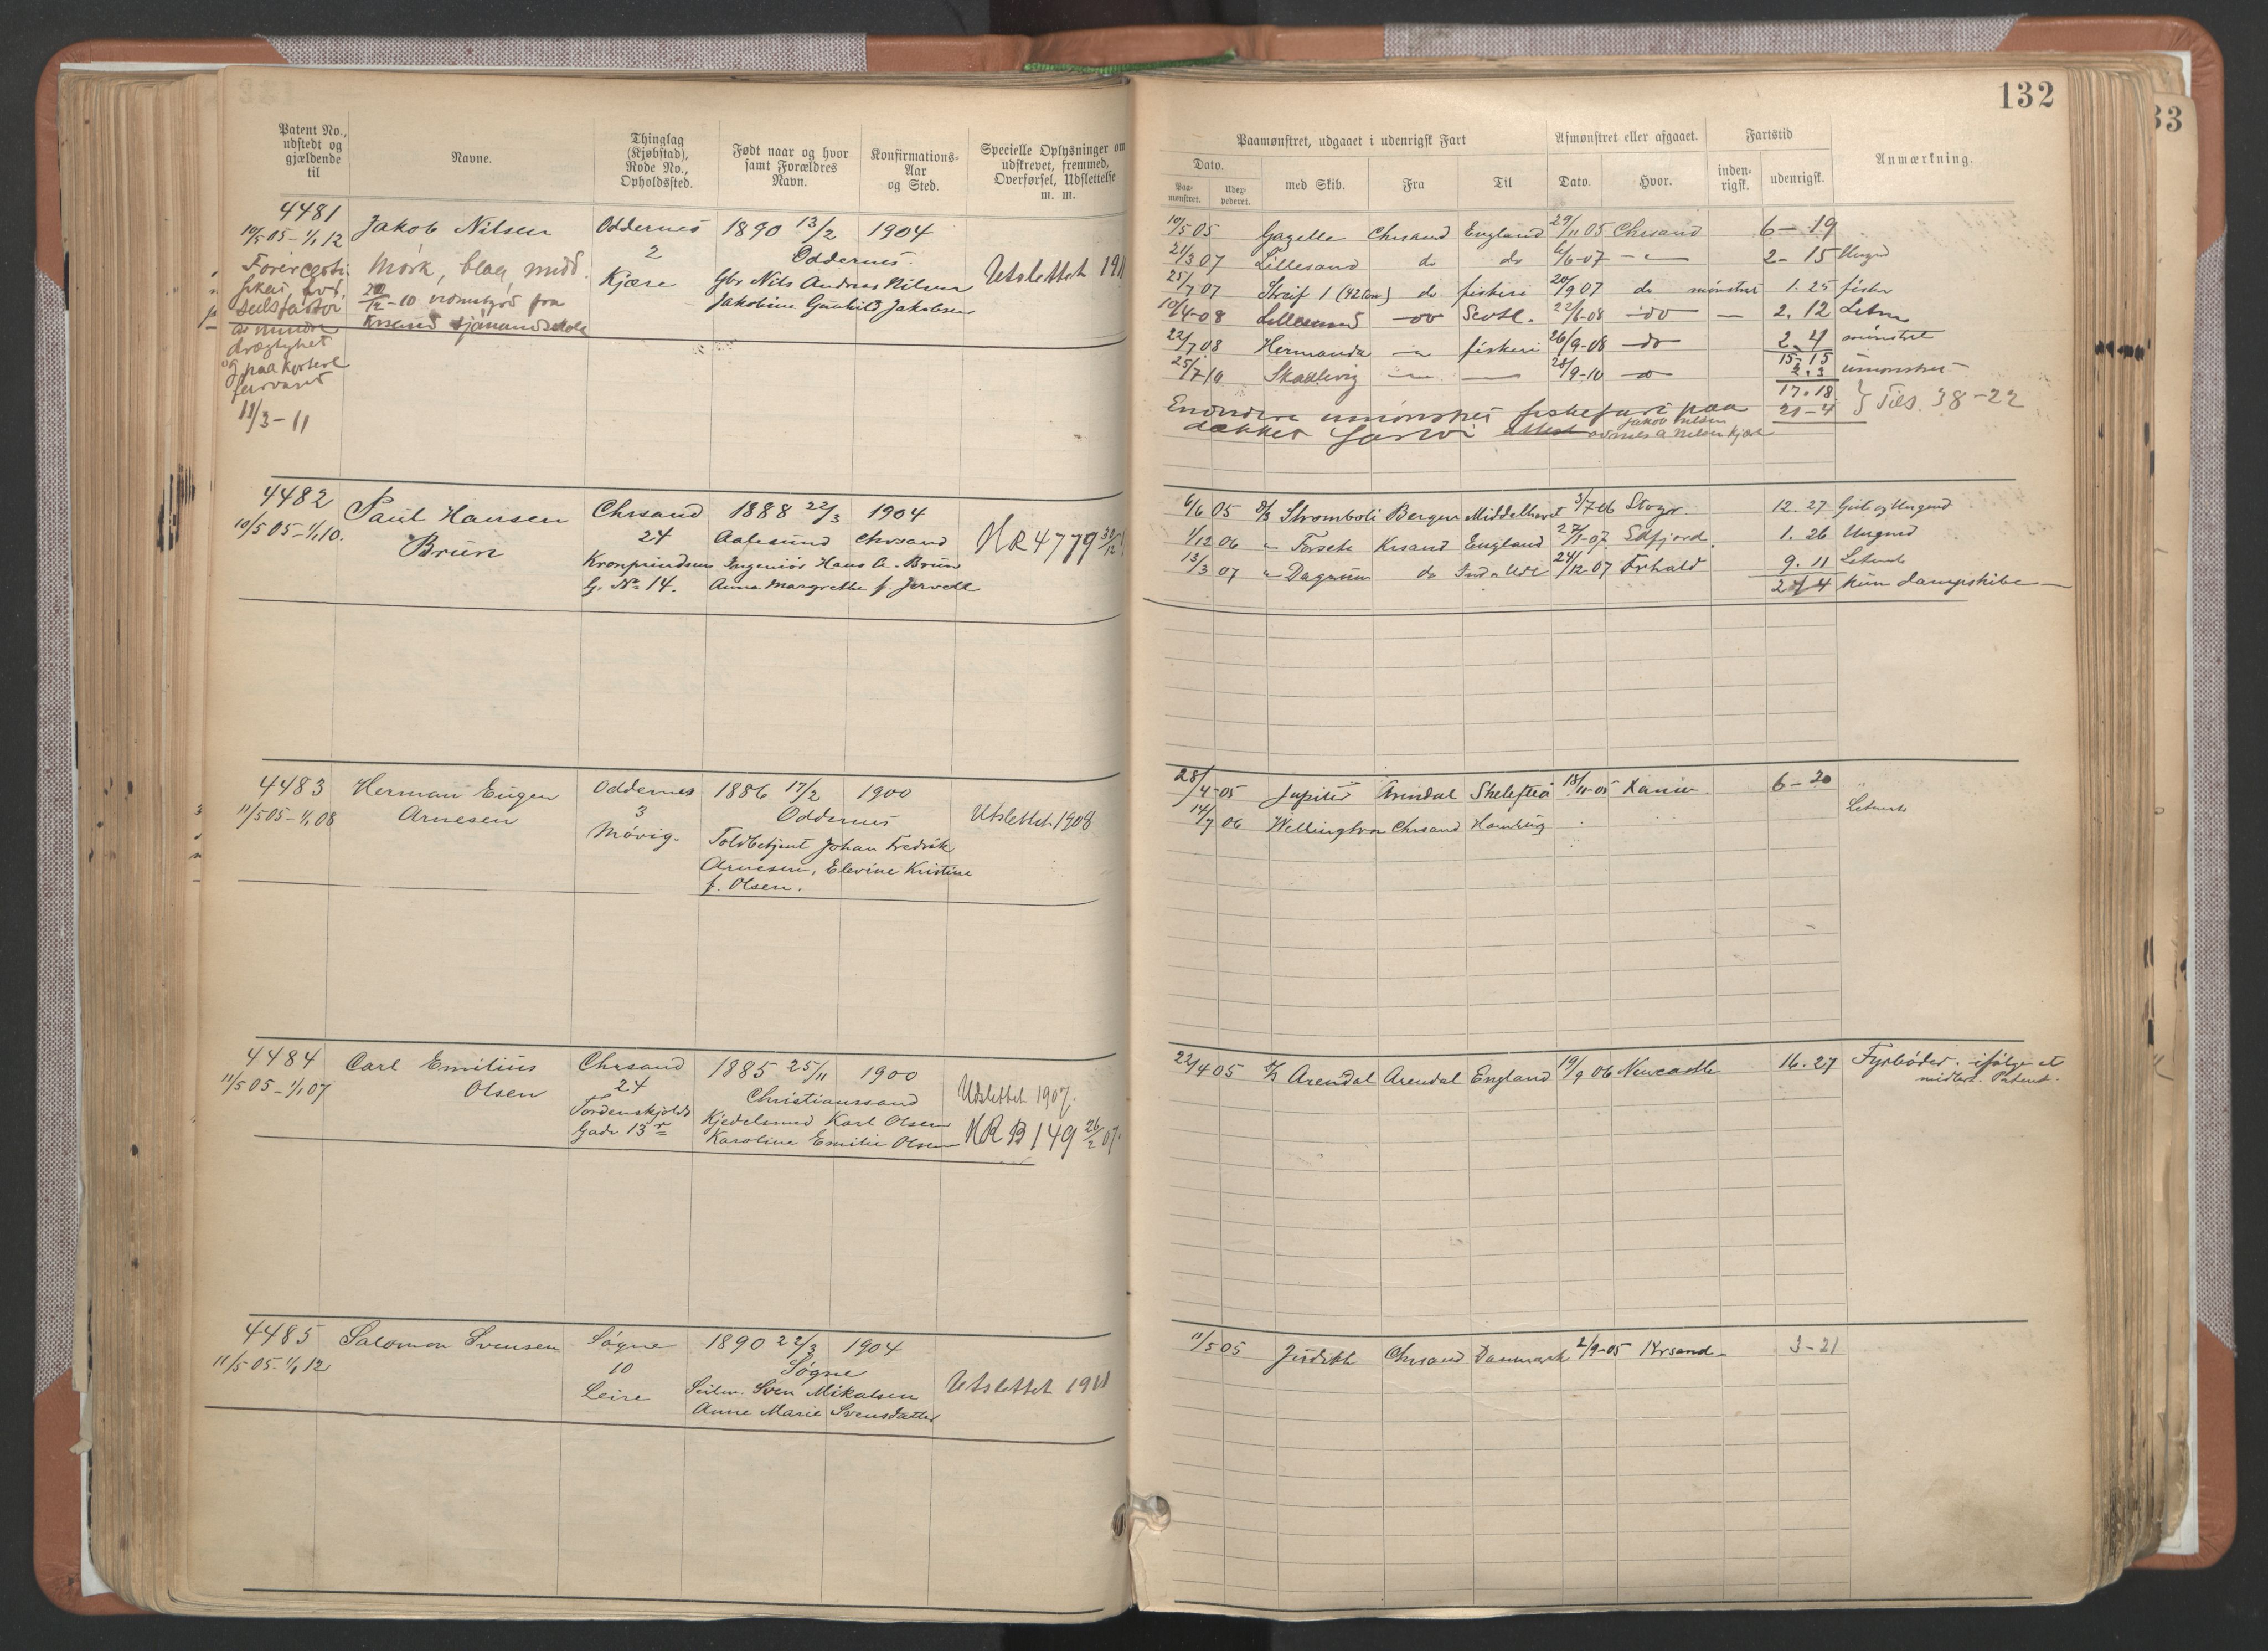 132
33
Patent No., udstedt og gjældende til
Navne.
Thinglag (Kjøbstad), Rode No., Opholdssted.
Født naar og hvor samt Forældres Navn.
Konfirmations-Aar og Sted.
Specielle Oplysninger om udskrevet, fremmed, Overførsel, Udslettelse m. m.
4481
10/5 05 - 1/1 12
Jakob Nilsen
Mørk, blaa, midd.
Oddernes
2
Kjære
1890 13/2 1904
Oddernes.
Gbr Nils Andreas Nilsen
Jakobine Gunhild Jakobsen
Utslettet 191
11/3 - 11
4482
10/5 05 - 1/1 10.
Paul Hansen
Brun
Chrsand
24
Kronprindsens
G. No 14.
1888 22/3 1904
Aalesund Chrsand
Ingeniør Hans A. Brun
Anna Margrethe f. Jervell
HR 4779
4483
11/5 05 - 1/1 08
Herman Eugen
Arnesen
Oddernes
3
Møvig.
1886 17/2 1900
Oddernes
Toldbetjent Johan Fredrik
Arnesen, Elevine Kristine
f. Olsen.
Utslettet 1908
4484
11/5 05 - 1/1 07
Carl Emilius
Olsen
Chrsand
24
Tordenskjolds
Gade 13
1885 25/11 1900
Christianssand
Kjedelsmed Karl Olsen
Karoline Emilie Olsen
Udslettet 1907.
HR B 149 26/2 07.
4485
11/5 05 - 1/1 12
Salomon Svensen
Søgne
10
Leire
1890 22/3 1904
Søgne
Seilm. Sven Mikalsen
Anne Marie Svensdatter
Utslettet 1911
Paamønstret, udgaaet i udenrigsk Fart
Afmønstret eller afgaaet.
Fartstid
Anmærkning.
Dato.
Paa-mønstret.
Udex-pederet.
med Skib.
Fra
Til
Dato.
Hvor.
inden-rigsk.
udenrigsk.
10/5 05 Gazelle Chrsand England 29/11 05 Chrsand 6 - 19
21/3 07 Lillesand do do 6/6-07 - " - 2 - 15 Ungm
25/7 07 Streif 1 (42 ton) do fiskeri 20/9 07 do mønstret 1. 25 fisker
10/4-08 Lillesand - do Scotl. 22/6-08 - do - 2. 12 Letm
22/7 08 Hermanda - " fiskeri 26/9-08 - do 2. 4 mønstret
15-15
25/7-10 Skadevig 28/9-10 2. 3 umønstret
17. 18
21-4 } Tils. 38-22
6/6 05 D/S Stromboli Bergen Middelhavet 3/7-06 12. 27
1/12 06 " Forsete Krsand England 27/1-07. 1. 26 Ungmd
13/3 07 " Dagrun do 24/12 07 9. 11
kun dampskibe
28/4-05 Jupiter Arendal Skelefteå 18/11-05 6 - 20
14/7 06 Wellington Chrsand Hamburg
Letmats
22/4 05 D/S Arendal Arendal England 19/9 06 Newcastle 16. 27 Fyrbøder. ifølge et
midlert. Patent.
11/5 05 Judith Chrsand Danmark 2/9-05 Krsand - 3 - 21